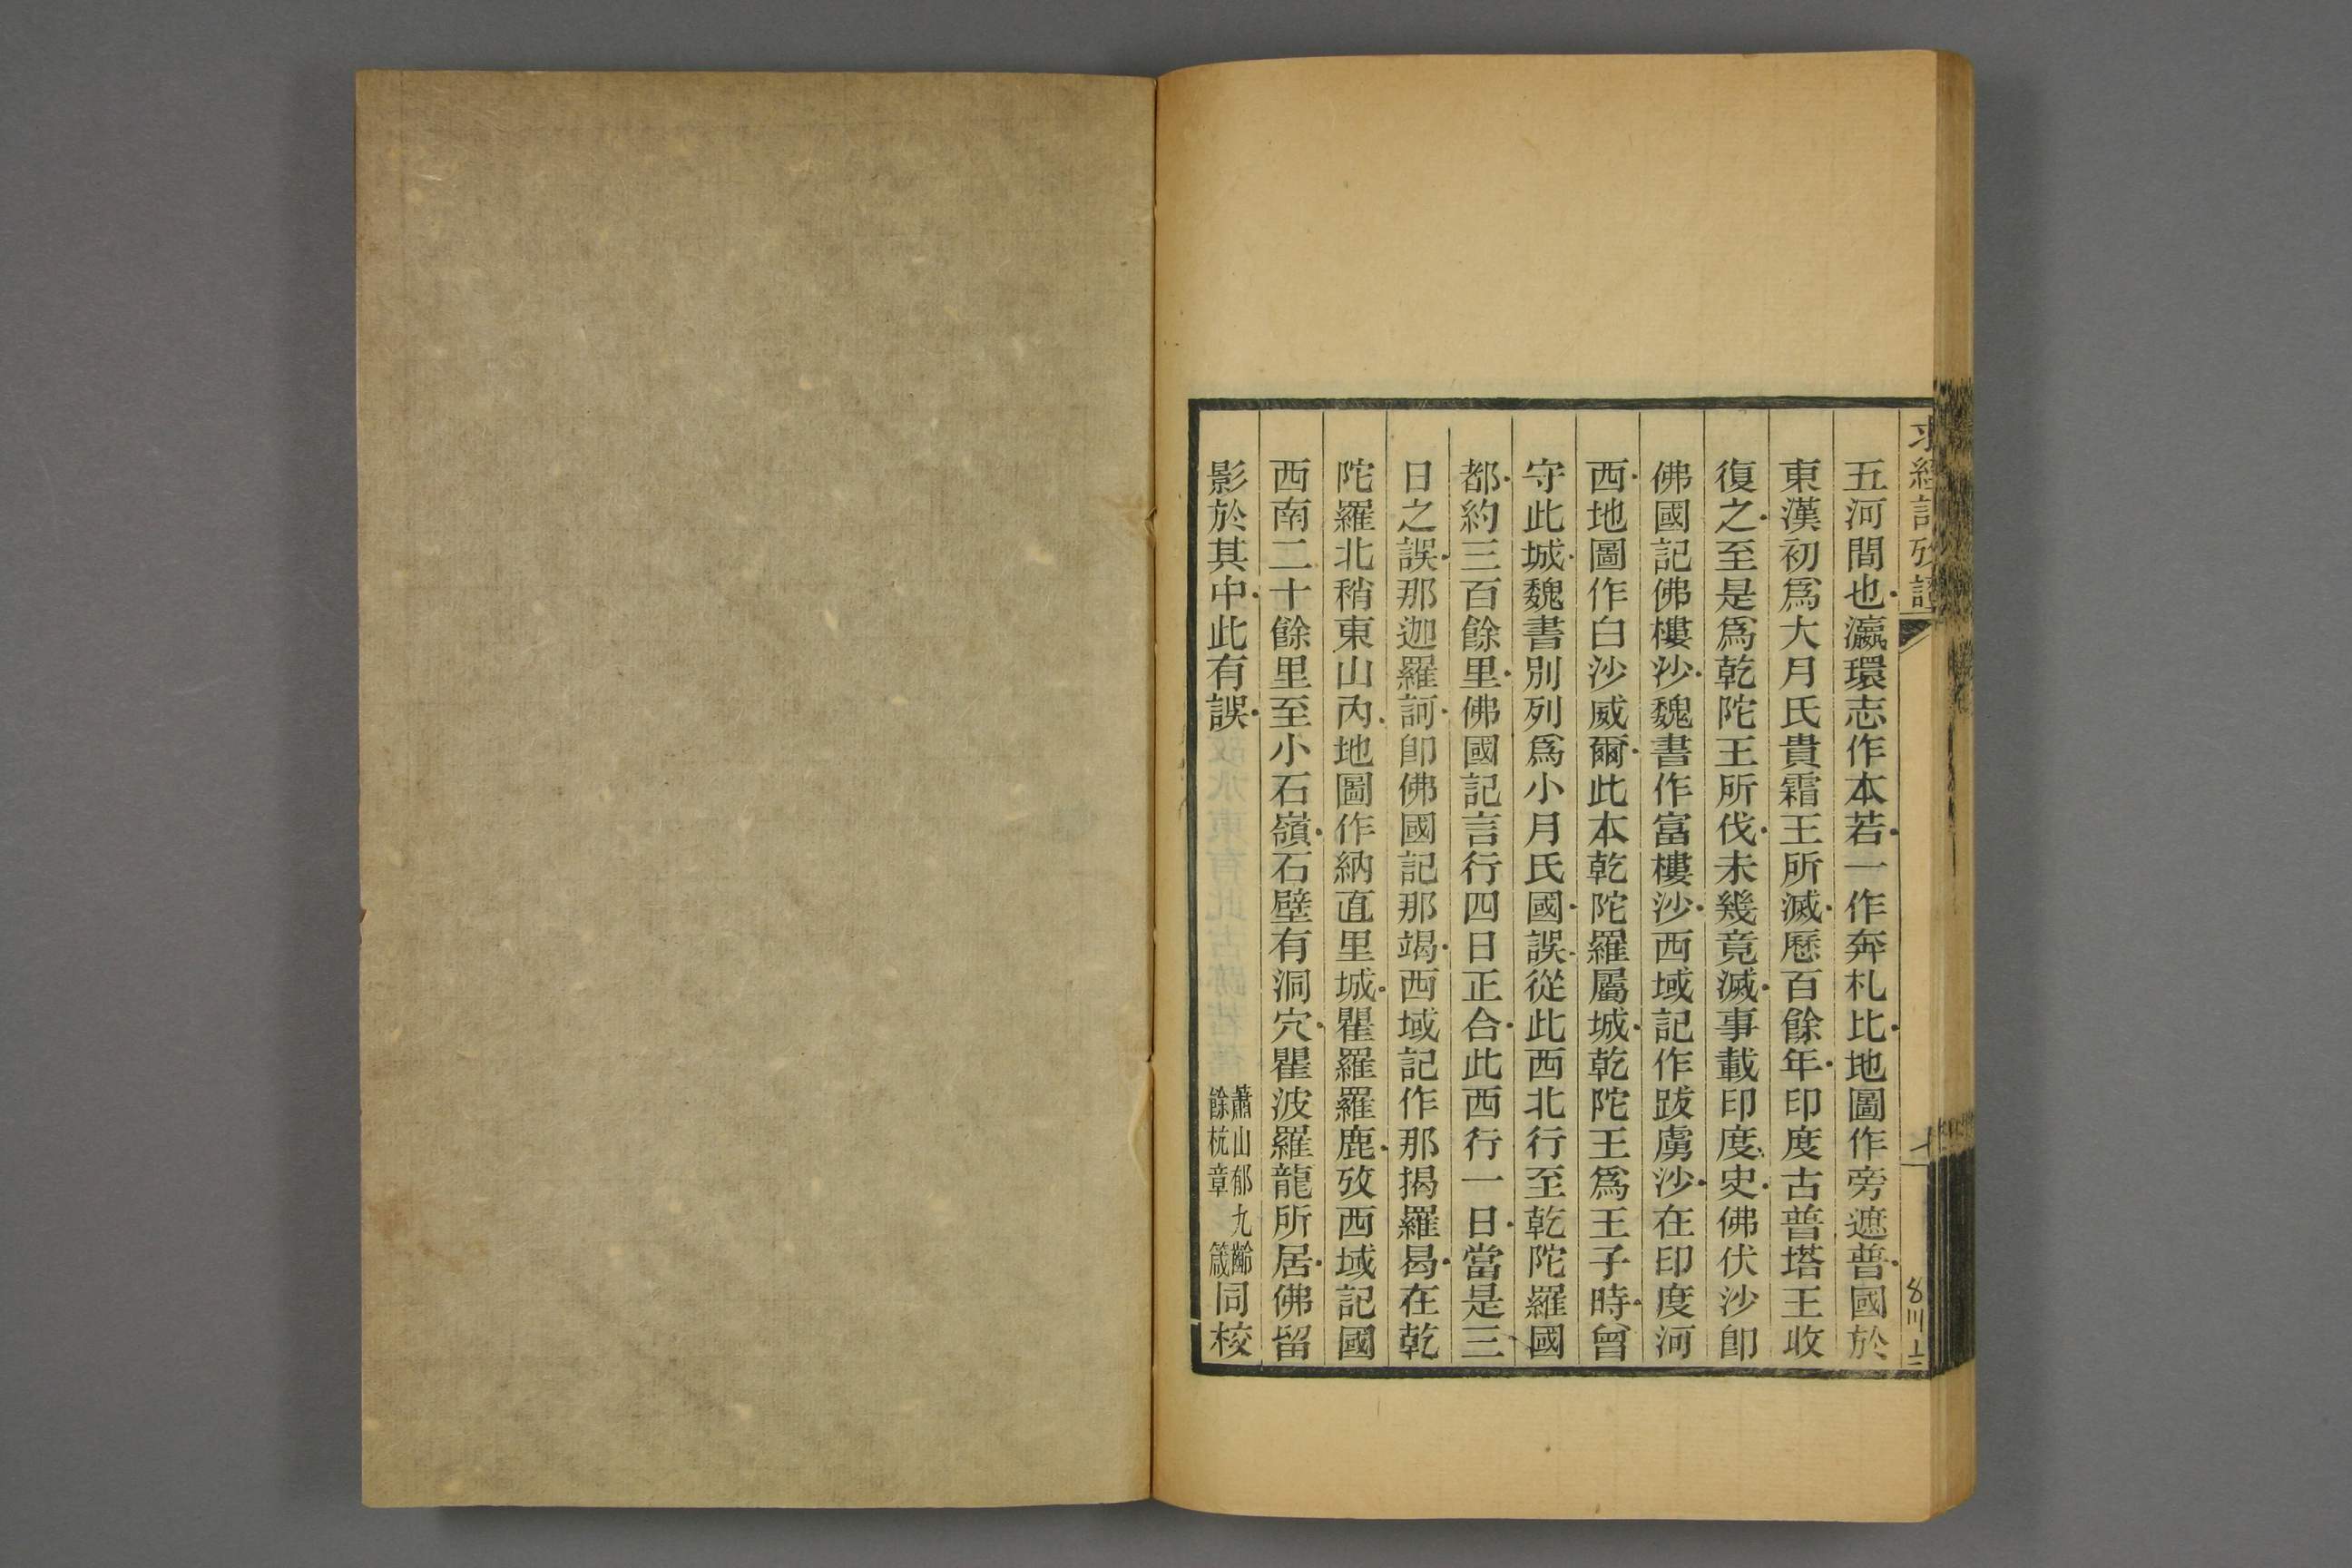 求經記攷證
七
五河間也瀛環志作本若一作奔札比地圖作旁遮普國於
東漢初爲大月氏貴霜王所滅歷百餘年印度古普塔王收
復之至是爲乾陀王所伐未幾竟滅事載印度史佛伏沙卽
佛國記佛樓沙魏書作富樓沙西域記作跋虜沙在印度河
西地圖作白沙威爾此本乾陀羅屬城乾陀王爲王子時曾
守此城魏書別列爲小月氏國誤從此西北行至乾陀羅國
都約三百餘里佛國記言行四日正合此西行一日當是三
日之誤那迦羅訶卽佛國記那竭西域記作那揭羅曷在乾
陀羅北稍東山內地圖作納直里城瞿羅羅鹿攷西域記國
西南二十餘里至小石嶺石壁有洞穴瞿波羅龍所居佛留
影於其中此有誤
蕭山郁九齡
餘杭章箴
同校